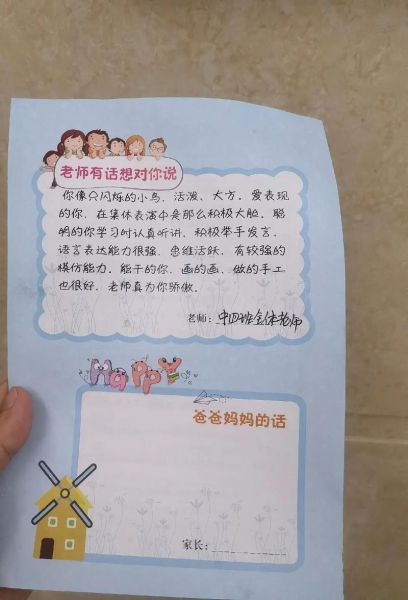 老师有话想对你说
你像只闪烁的小鸟，活泼、大方。爱表现
的你，在集体表演中是那么积极大胆。聪
明的你学习时认真听讲，积极举手发言，
语言表达能力很强，思维活跃，有较强的
模仿能力。能干的你，画的画、做的手工
也很好，老师真为你骄傲。
老师：中四班全体老师
HAPPY
爸爸妈妈的话
家长：